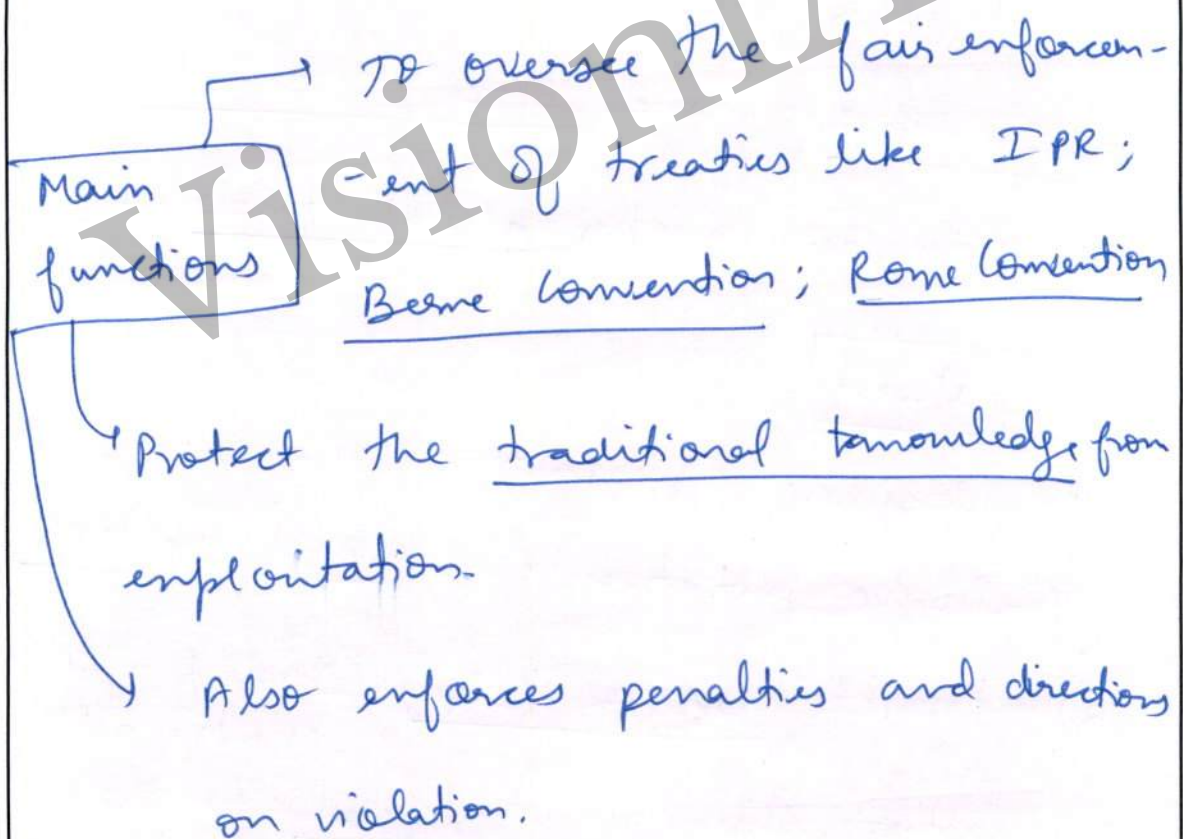 To oversee the fair enforcem-
Main
-ent of treaties like IPR;
functions
Berne Convention; Rome Convention
Protect the traditional knowledge from
exploitation.
Also enforces penalties and directions
on violation.